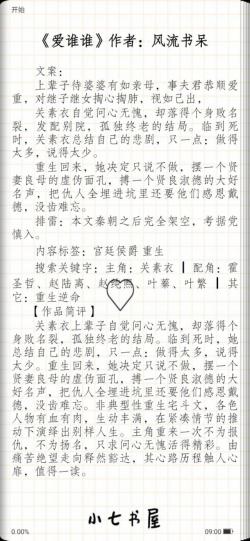 开始
《爱谁谁》作者：风流书呆
文案：
上辈子侍婆婆有如亲母，事夫君恭顺爱
重，对继子继女掏心掏肺，视如己出，
关素衣自觉问心无愧，却落得个身败名
裂，发配别院，孤独终老的结局。临到死
时，关素衣总结自己的悲剧，只一点：做得
太多，说得太少。
重生回来，她决定只说不做，摆一个贤
妻良母的虚伪面孔，搏一个贤良淑德的大好
名声，把仇人全埋进坑里还要他们感恩戴
德，没齿难忘。
排雷：本文秦朝之后完全架空，考据党
慎入。
内容标签：宫廷侯爵 重生
搜索关键字：主角：关素衣 ┃ 配角：霍
圣哲、赵陆离、赵纯熙、叶蓁、叶繁 ┃ 其
它：重生逆命
【作品简评】
关素衣上辈子自觉问心无愧，却落得个
身败名裂，孤独终老的结局。临到死时，她
总结自己的悲剧，只一点：做得太多，说得
太少。重生回来，她决定只说不做，摆一个
贤妻良母的虚伪面孔，搏一个贤良淑德的大
好名声，把仇人全埋进坑里还要他们感恩戴
德，没齿难忘。非典型性重生宅斗文，各色
人物有血有肉，生动丰满，在紧凑情节的推
动下演绎出别样人生。主角重来一次不为报
仇，不为扬名，只求问心无愧活得精彩。由
痛苦绝望走向释然豁达，其心路历程触人心
扉，值得一读。
小七书屋
0.00%
09:00